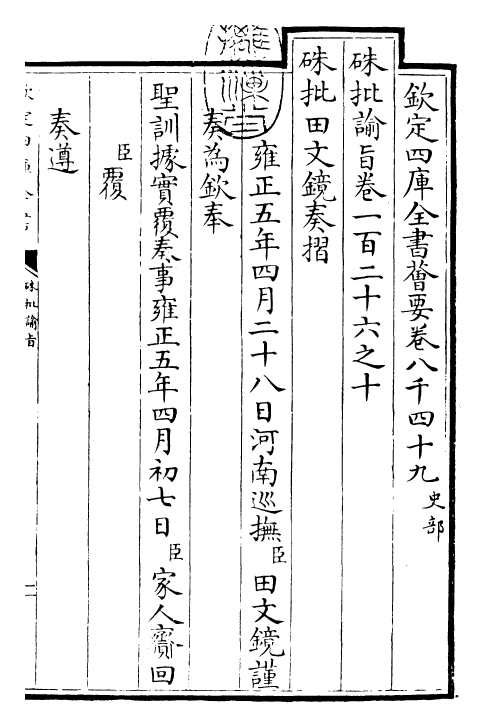 欽定四庫全書薈要卷八千四十九史部
硃批諭旨卷一百二十六之十
硃批田文鏡奏摺
雍正五年四月二十八日河南巡撫臣田文鏡謹
奏為欽奉
聖訓據實覆奏事雍正五年四月初七日臣家人齎回
臣覆
奏遵
硃批諭旨